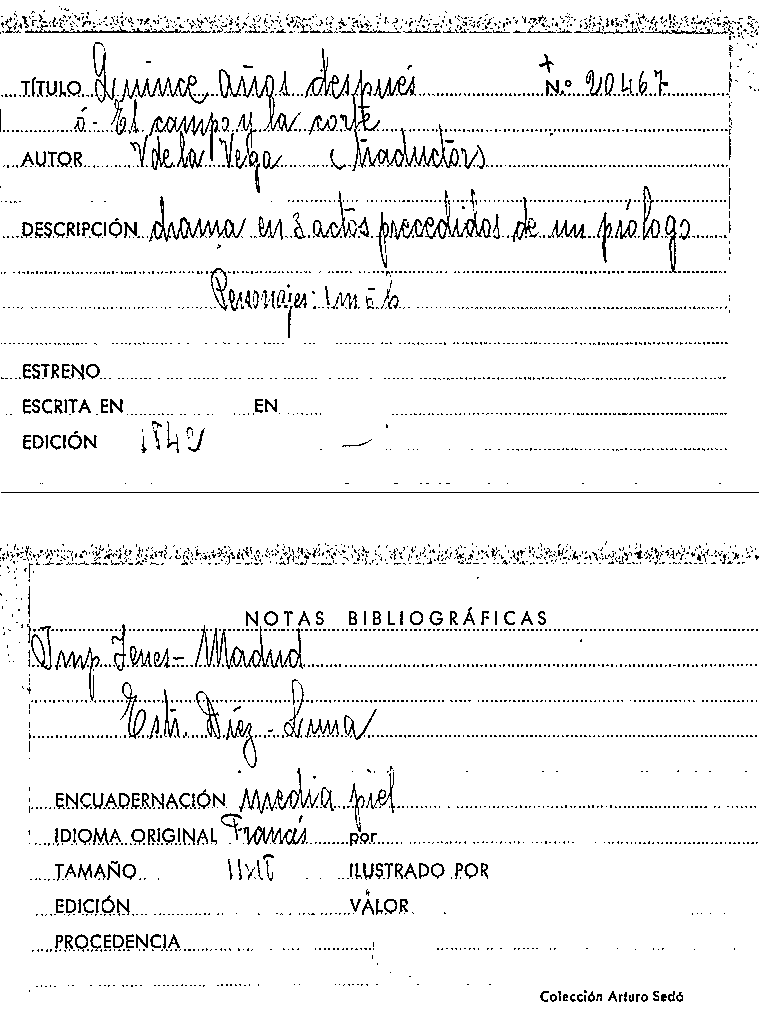 TÍTULO Quince años despues N.º 20467
ó - El campo y la corte
AUTOR V de la Vega (traductor)
DESCRIPCIÓN drama en 3 actos precedidos de un prólogo
Personajes:
ESTRENO
ESCRITA EN EN
EDICIÓN 1842 —
NOTAS BIBLIOGRÁFICAS
Imp Yenes - Madrid
Estr. Díez - Luna
ENCUADERNACIÓN media piel
IDIOMA ORIGINAL Francés por
TAMAÑO ILUSTRADO POR
EDICIÓN VALOR
PROCEDENCIA
Colección Arturo Sedó